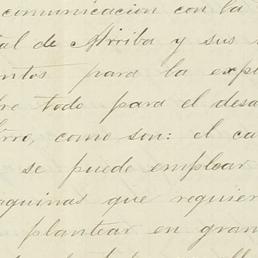 comunicacion con la
tal de Arriba y sus
ntos para la exp
re todo para el desa
rro, como son: el ca
se puede emplear
aquinas que requier
plantear en gran